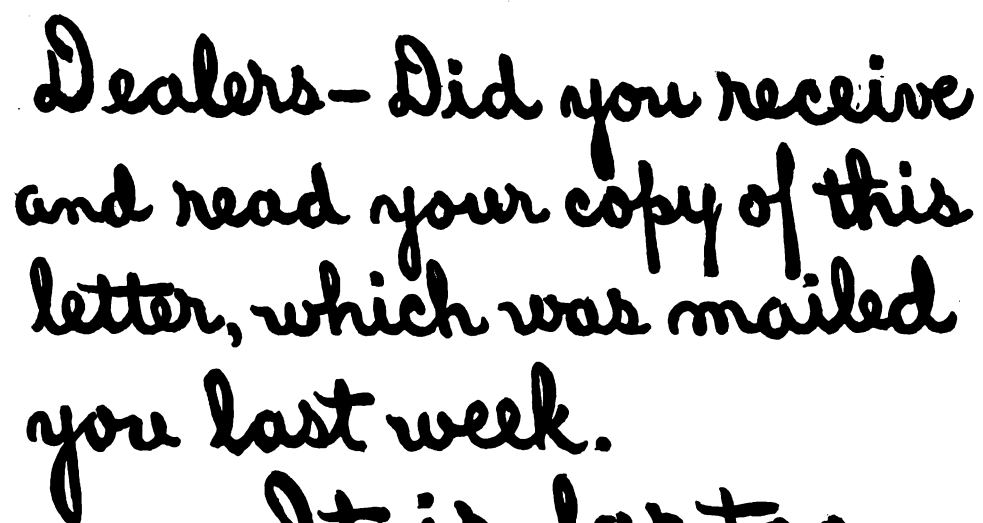 Dealers—Did you receive
and read your copy of this
letter, which was mailed
you last week.
It is